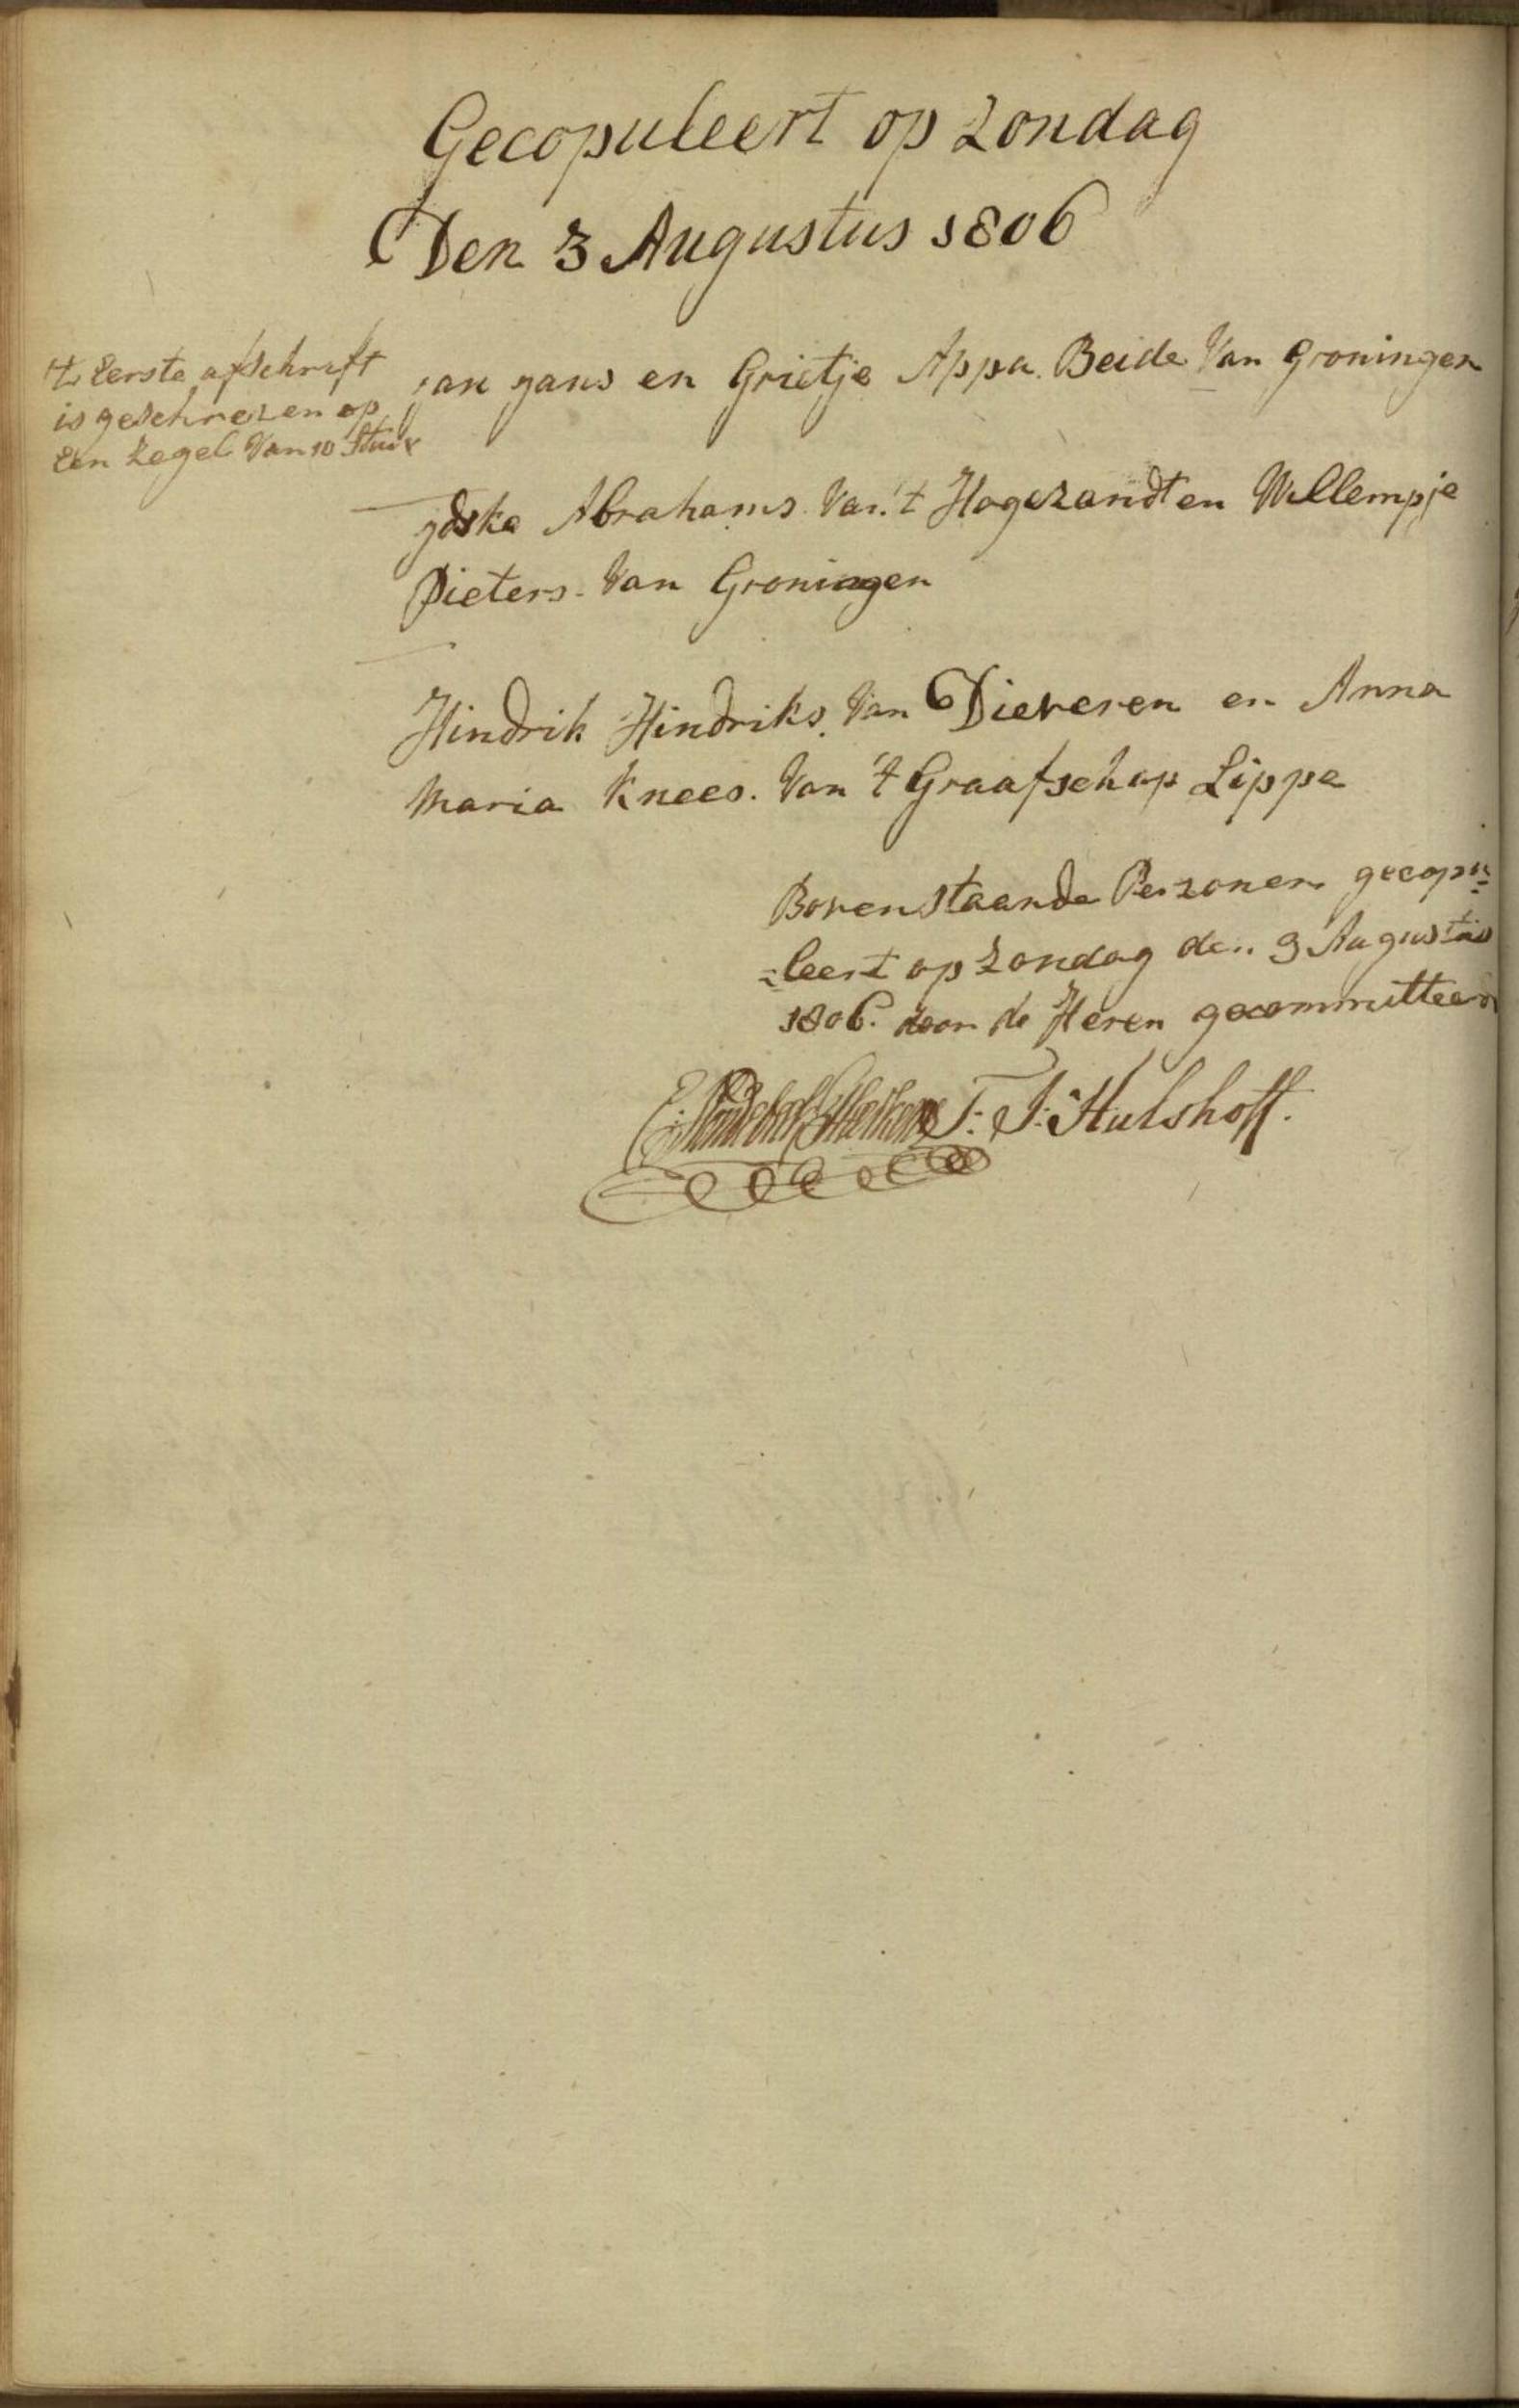 Gecopuleert op Zondag
Den 3 Augustus 1806
't Eerste afschrift
is geschreven op
Een Zegel Van 10 Stuiv
jan jans en Grietje Appa. Beide Van Groningen
ydske Abrahams. Van 't Hogezandt en Willempje
Pieters. Van Groningen
Hindrik Hindriks. Van Dieveren en Anna
Maria Knees. Van 't Graafschap Lippe
Bovenstaande Perzonen gecopu=
=leert op Zondag den 3 Augustus
1806. door de Heren gecommitteerd
T: J: Hulshoff.